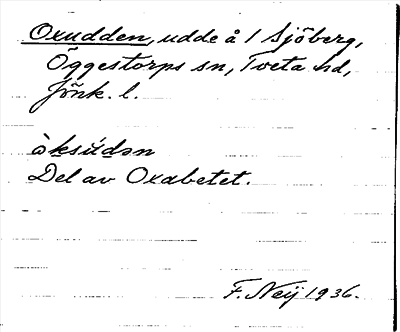 Oxudden, udde å 1 Sjöberg,
Öggestorps sn, Tveta hd,
Jönk. l.
òksúdən
Del av Oxabetet.
F. Neij 1936.